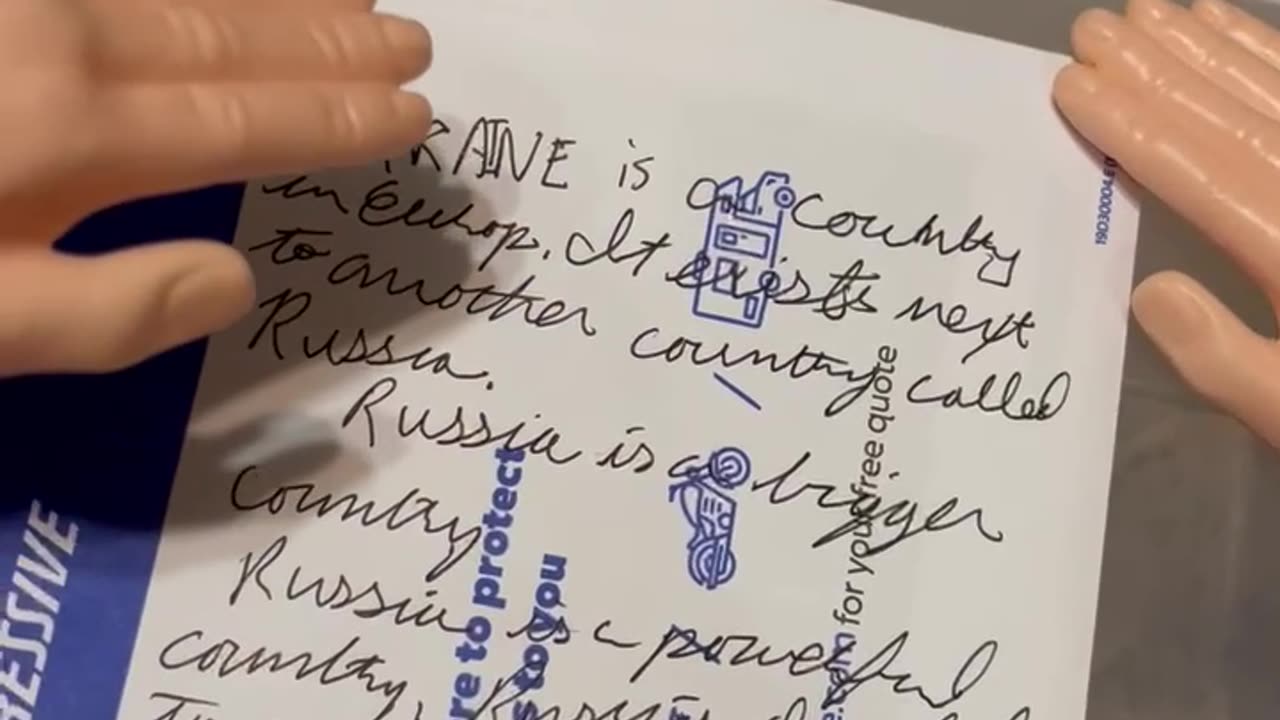 RAINE is a country
in Europ. It exists next
to another country called
Russia.
Russia is a bigger
country
Russia is a powerful
country,
190300048
free quote
for you
re to protect
s to you
RESSIVE